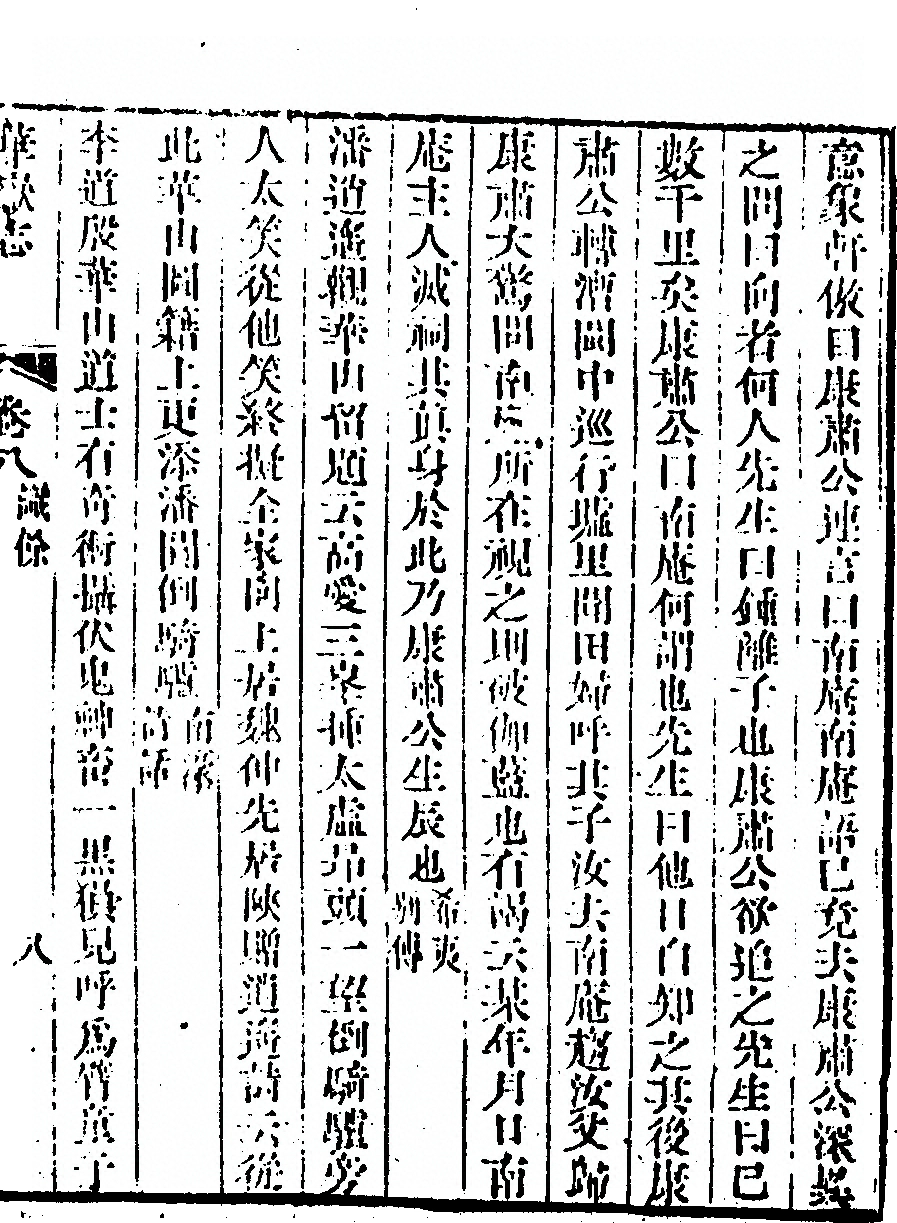 意象軒傲目康肅公連言曰南庵南庵語已竟去康肅公深異
之問曰向者何人先生曰鍾離子也康肅公欲追之先生曰已
數千里矣康肅公曰南庵何謂也先生曰他日自知之其後康
肅公轉漕閩中巡行墟里閒田婦呼其子汝去南庵趨汝父歸
康肅大驚問南庵所在視之則廢伽藍也有碣云某年月日南
庵主人滅祠其眞身於此乃康肅公生辰也希夷別傳
潘逍遙觀華山留題云高愛三峯揷太虛昻頭一望倒騎驢旁
人太笑從他笑終擬全家向上居魏仲先居陜贈逍遙詩云從
此華山圖籍上更添潘閬倒騎驢南濠詩話
李道殷華山道士有奇術攝伏鬼神畜一黑猿兒呼爲臂童子
華嶽志
卷八 識餘
八